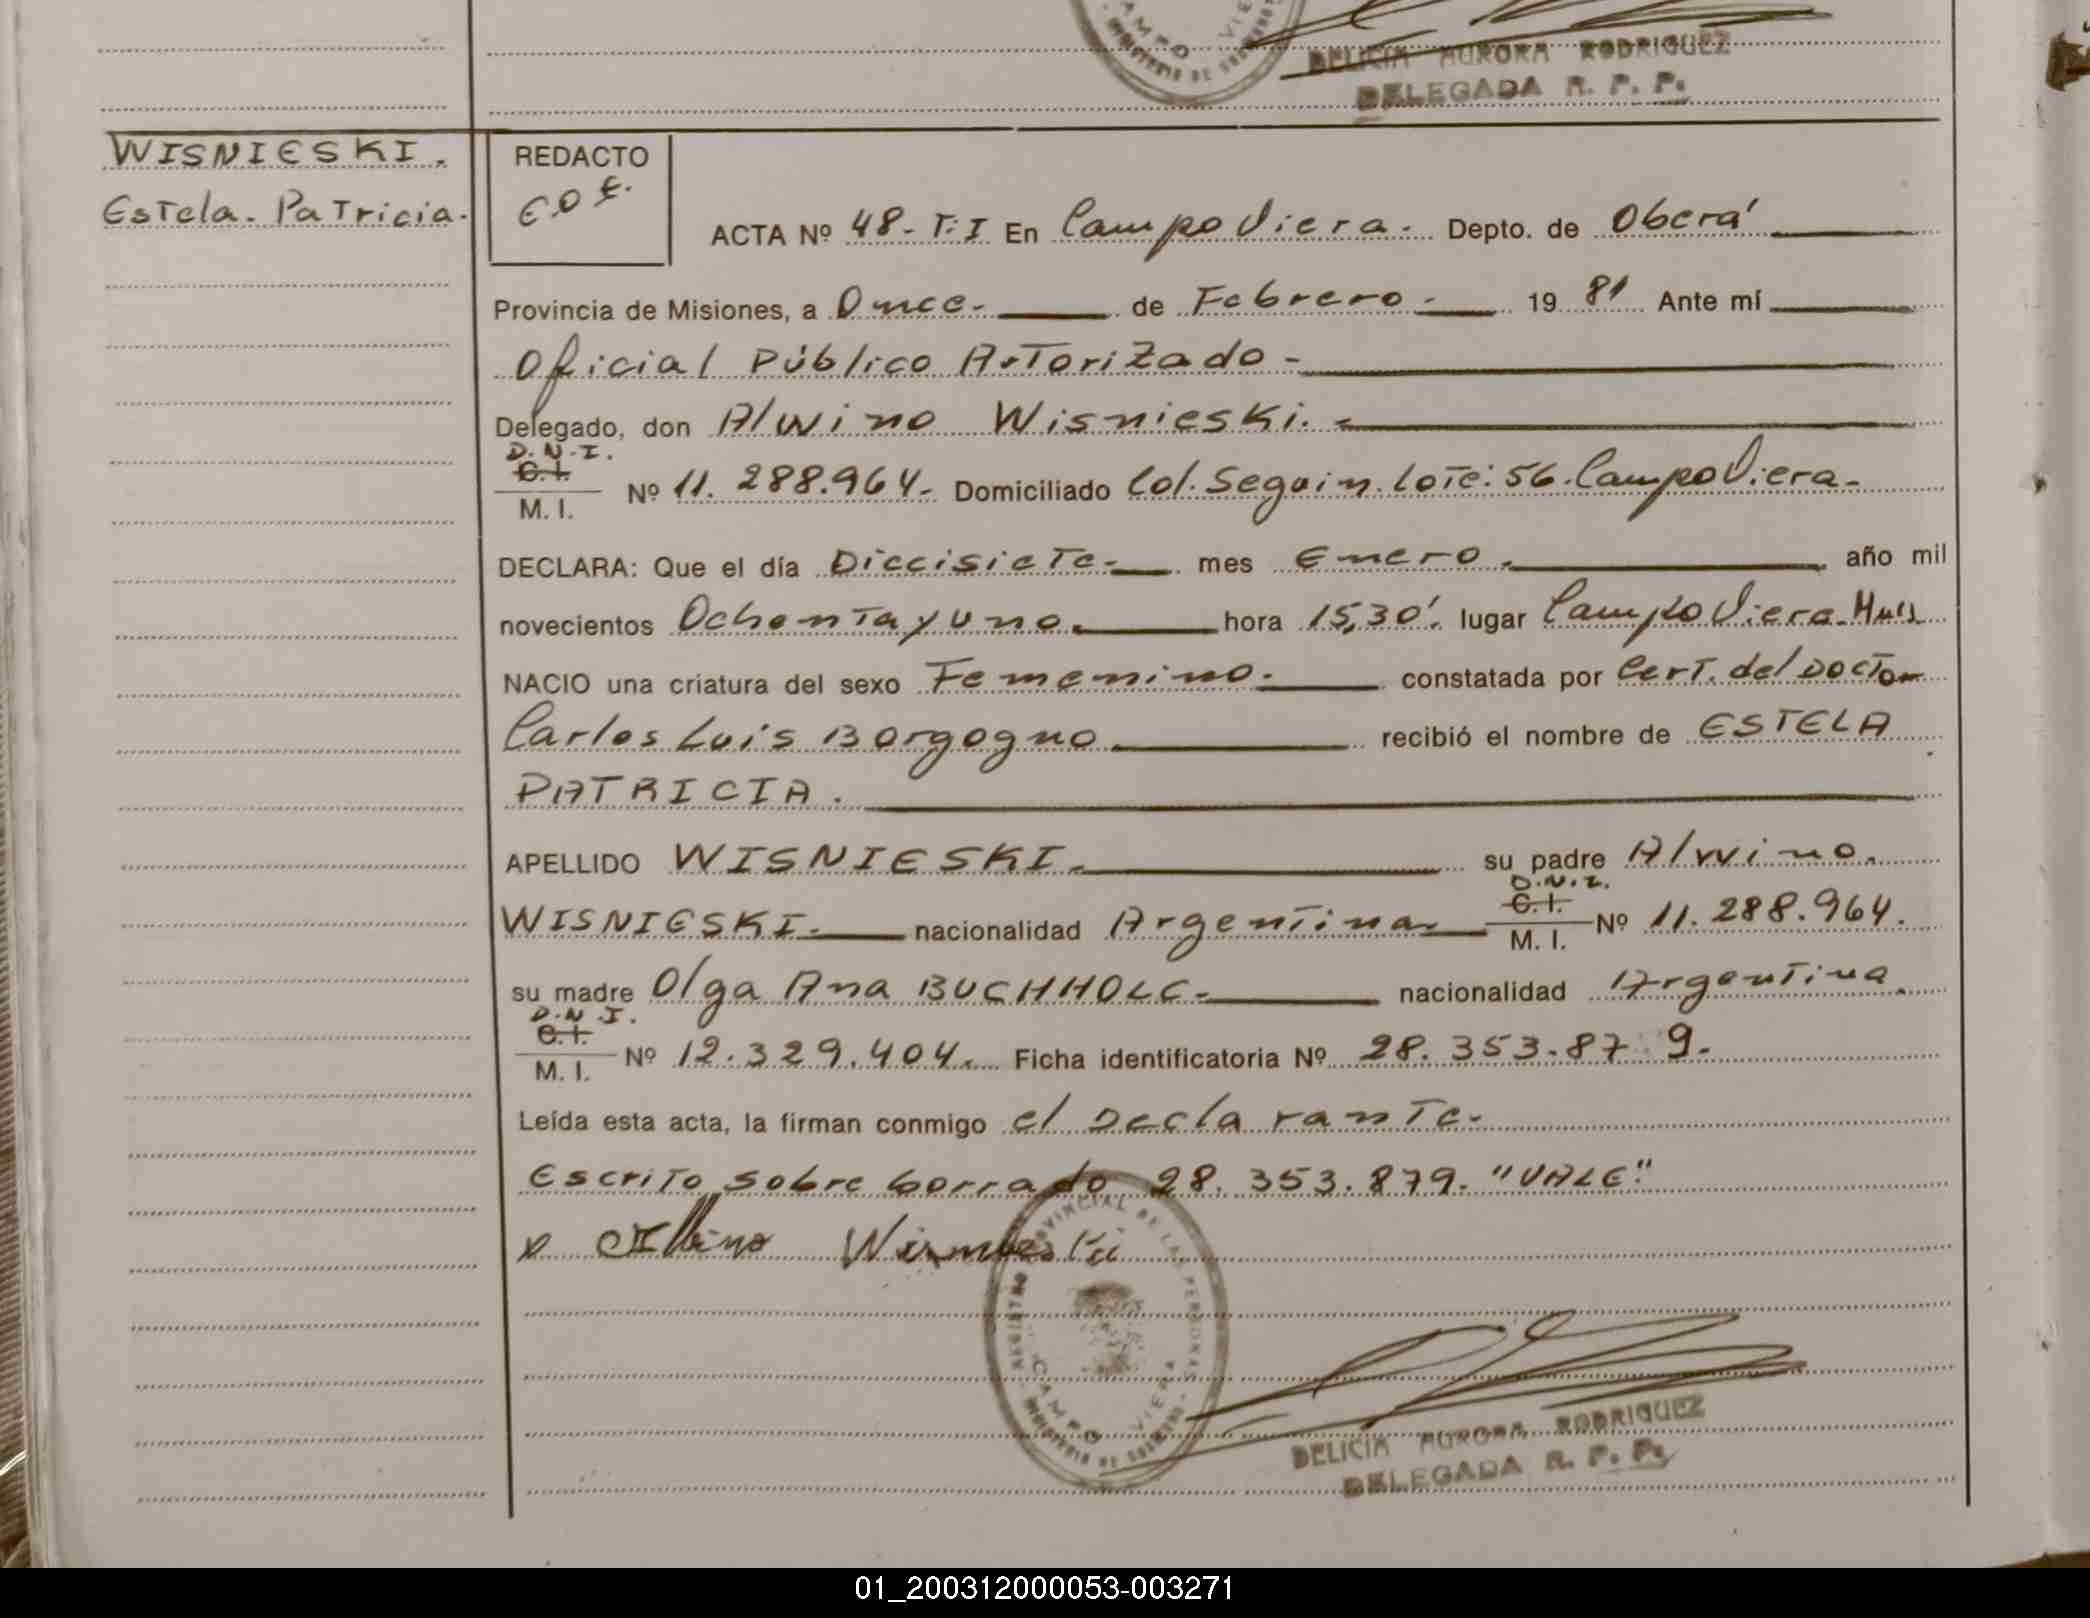 DELICIA AURORA RODRIGUEZ
DELEGADA R. P. P.
WISNIESKI.
Estela. Patricia.
REDACTO
ACTA Nº 48- T: I En Campo Viera. Depto. de Oberá
Provincia de Misiones, a Once. de Febrero - 19 81 Ante mí
Oficial Público Autorizado -
Delegado, don Alwino Wisnieski. -
D. N. I.
C. I.
M. I.
Nº 11. 288.964. Domiciliado Col. Seguin. Lote: 56. Campo Viera.
DECLARA: Que el día Diecisiete. mes Enero. año mil
novecientos Ochenta y uno. hora 15,30'. lugar Campo Viera.
NACIO una criatura del sexo Femenino. constatada por Cert. del Doctor
Carlos Luis Borgogno recibió el nombre de ESTELA
PATRICIA.
APELLIDO WISNIESKI. su padre Alwino.
D. N. I.
WISNIESKI. nacionalidad Argentina C. I. Nº 11. 288.964.
M. I.
su madre Olga Ana BUCHHOLC. nacionalidad Argentina.
D. N. I.
C. I.
M. I.
Nº 12.329.404. Ficha identificatoria Nº 28. 353.87 9.
Leída esta acta, la firman conmigo el Declarante.
Escrito sobre borrado 28. 353.879. "VALE".
REGISTRO PROVINCIAL DE LAS PERSONAS
CAMPO VIERA
MINISTERIO DE GOBIERNO
DELICIA AURORA RODRIGUEZ
DELEGADA R. P. P.
01_200312000053-003271